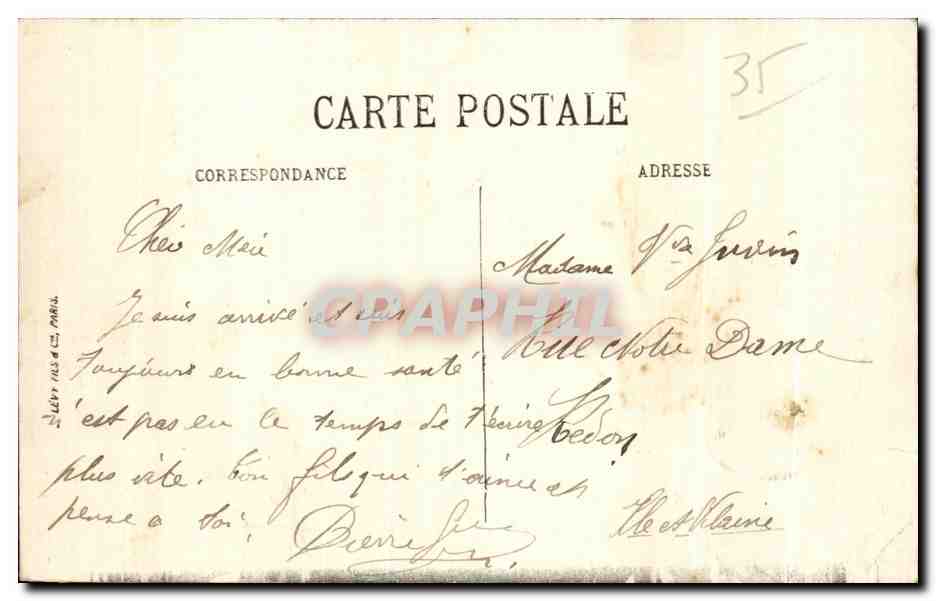 35
CARTE POSTALE
CORRESPONDANCE
ADRESSE
Cher Mère
Je suis arrivé et suis
toujours en bonne santé
n'est pas eu le temps de t'écrire
plus vite. Ton fils qui t'aime et
pense a toi.
Pierre
Madame Vve
Rue Notre Dame
Redon
Ille et Vilaine
LÉVY FILS & Cie, PARIS.
CPAPHIL